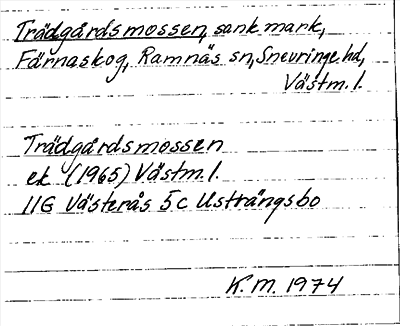 Trädgårdsmossen, sank mark,
Färnaskog, Ramnäs sn, Snevringe hd,
Västm. l.
Trädgårdsmossen
ek (1965) Västm. l.
11G Västerås 5c Usttängsbo
K. M. 1974